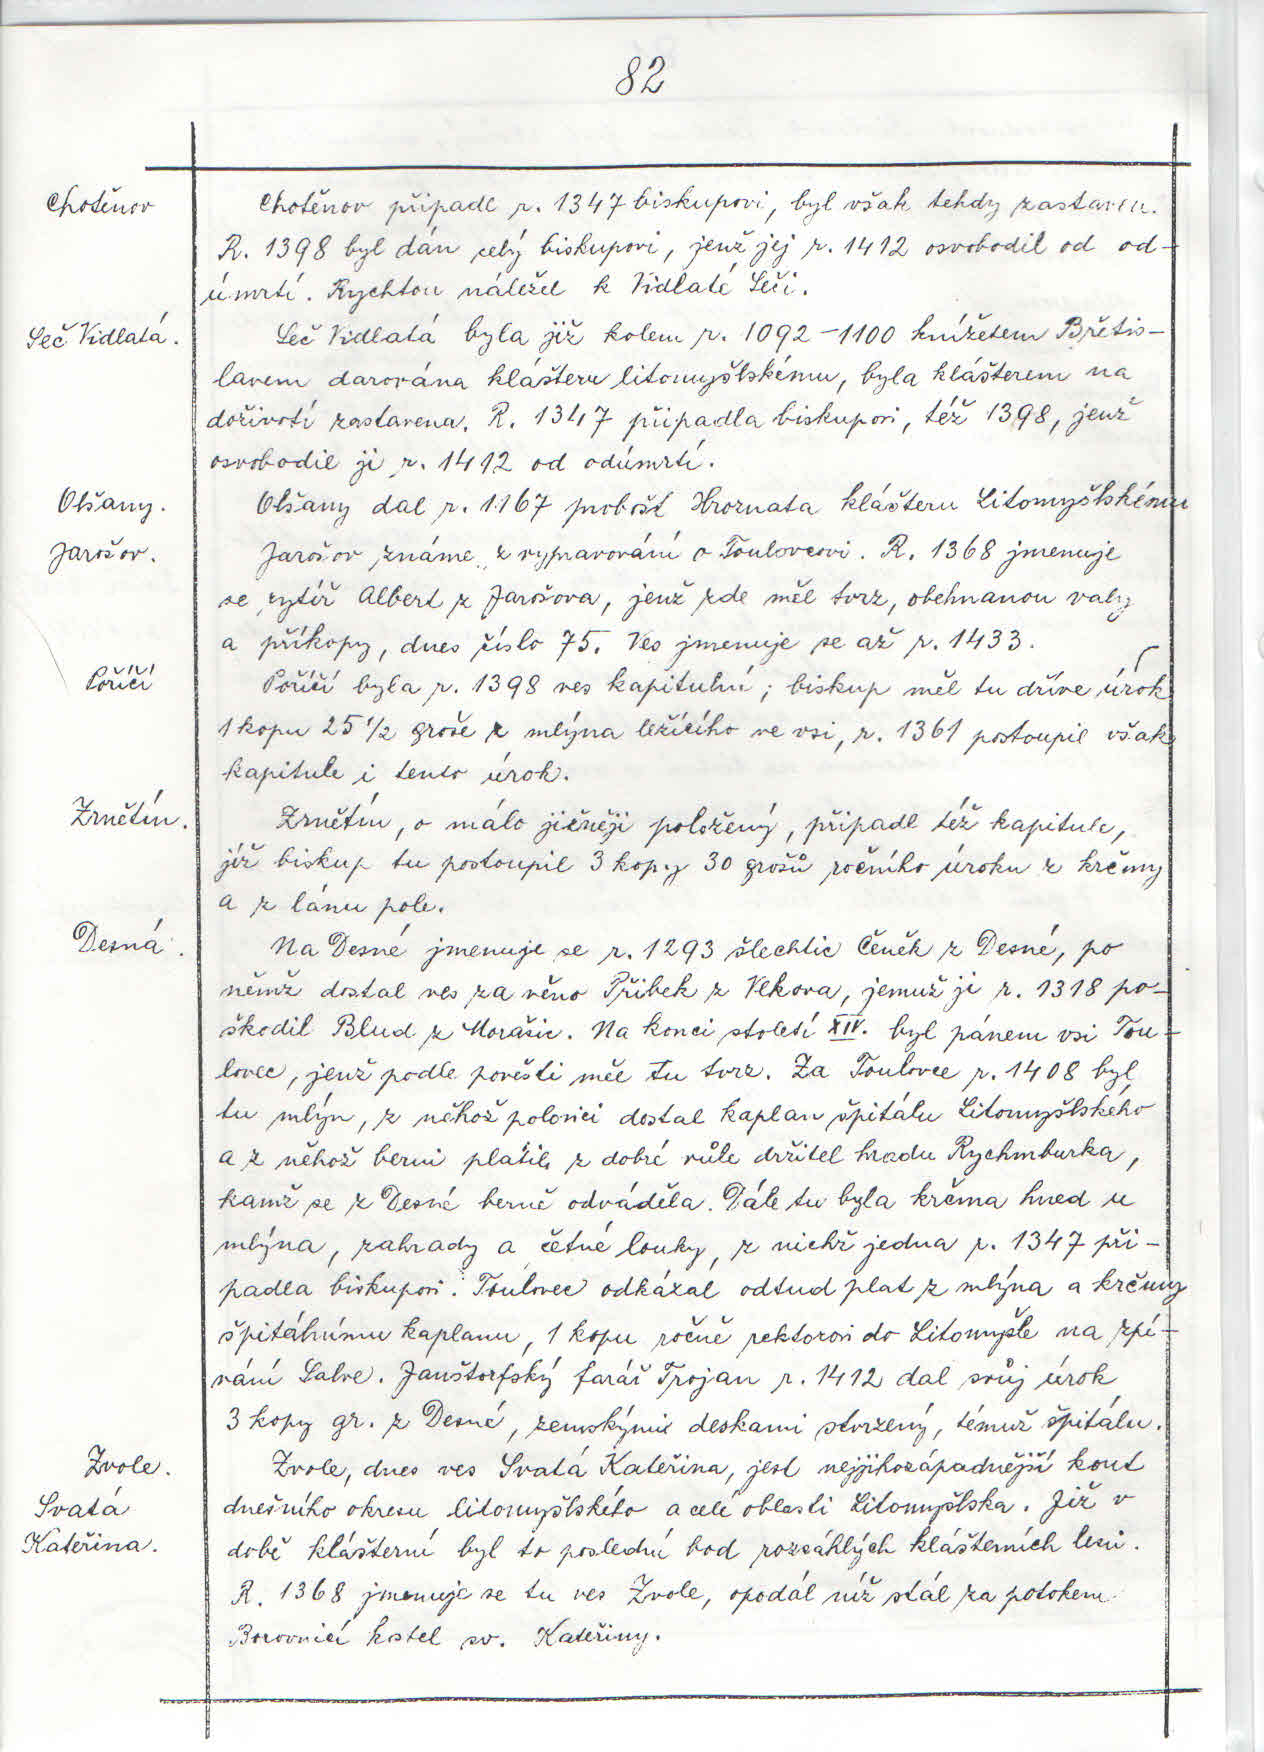 82
Chotěnov
Chotěnov připadl r. 1347 biskupovi, byl však tehdy zastaven.
R. 1398 byl dán celý biskupovi, jenž jej r. 1412 osvobodil od od-
úmrtí. Rychtou náležel k Vidlaté Seči.
Seč Vidlatá.
Seč Vidlatá byla již kolem r. 1092-1100 knížetem Břetis-
lavem darována klášteru litomyšlskému, byla klášterem na
doživotí zastavena. R. 1347 připadla biskupovi, též 1398, jenž
osvobodil ji r. 1412 od odúmrtí.
Olšany.
Olšany dal r. 1167 probošt Hroznata klášteru Litomyšlskému
Jarošov.
Jarošov známe z vypravování o Toulovcovi. R. 1368 jmenuje
se rytíř Albert z Jarošova, jenž zde měl tvrz, obehnanou valy
a příkopy, dnes číslo 75. Ves jmenuje se až r. 1433.
Poříčí
Poříčí byla r. 1398 ves kapitulní; biskup měl tu dříve úrok
1 kopu 25 1/2 groše z mlýna ležícího ve vsi, r. 1361 postoupil však
kapitule i tento úrok.
Zrnětín.
Zrnětín, o málo jižněji položený, připadl též kapitule,
jíž biskup tu postoupil 3 kopy 30 grošů ročního úroku z krčmy
a z lánu pole.
Desná.
Na Desné jmenuje se r. 1293 šlechtic Čeněk z Desné, po
němž dostal ves za věno Přibek z Vlkova, jemuž ji r. 1318 po-
škodil Blud z Morašic. Na konci století XIV. byl pánem vsi Tou-
lovec, jenž podle pověsti měl tu tvrz. Za Toulovce r. 1408 byl
tu mlýn, z něhož polovici dostal kaplan špitálu Litomyšlského
a z něhož berni platil z dobré vůle držitel hradu Rychmburka,
kamž se z Desné berně odváděla. Dále tu byla krčma hned u
mlýna, zahrady a četné louky, z nichž jedna r. 1347 při-
padla biskupovi. Toulovec odkázal odtud plat z mlýna a krčmy
špitálnímu kaplanu, 1 kopu ročně rektorovi do Litomyšle na zpí-
vání Salve. Janštorfský farář Trojan r. 1412 dal svůj úrok
3 kopy gr. z Desné, zemskými deskami stvrzený, témuž špitálu.
Zvole.
Svatá
Kateřina.
Zvole, dnes ves Svatá Kateřina, jest nejjihozápadnější kout
dnešního okresu litomyšlského a celé oblasti Litomyšlska. Již v
době klášterní byl to poslední bod rozsáhlých klášterních lesů.
R. 1368 jmenuje se tu ves Zvole, opodál níž stál za potokem
Borovnicí kostel sv. Kateřiny.